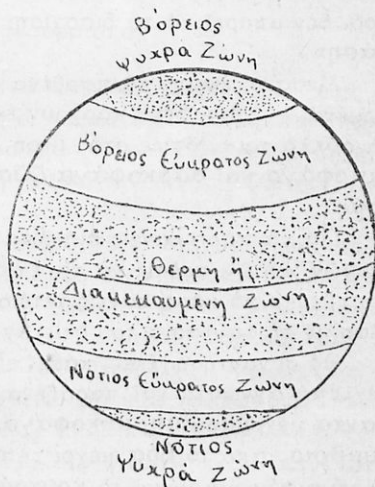 Βόρειος
Ψυχρά Ζώνη
Βόρειος Εὔκρατος Ζώνη
Θερμή ἤ
Διακεκαυμένη Ζώνη
Νότιος Εὔκρατος Ζώνη
Νότιος
Ψυχρά Ζώνη